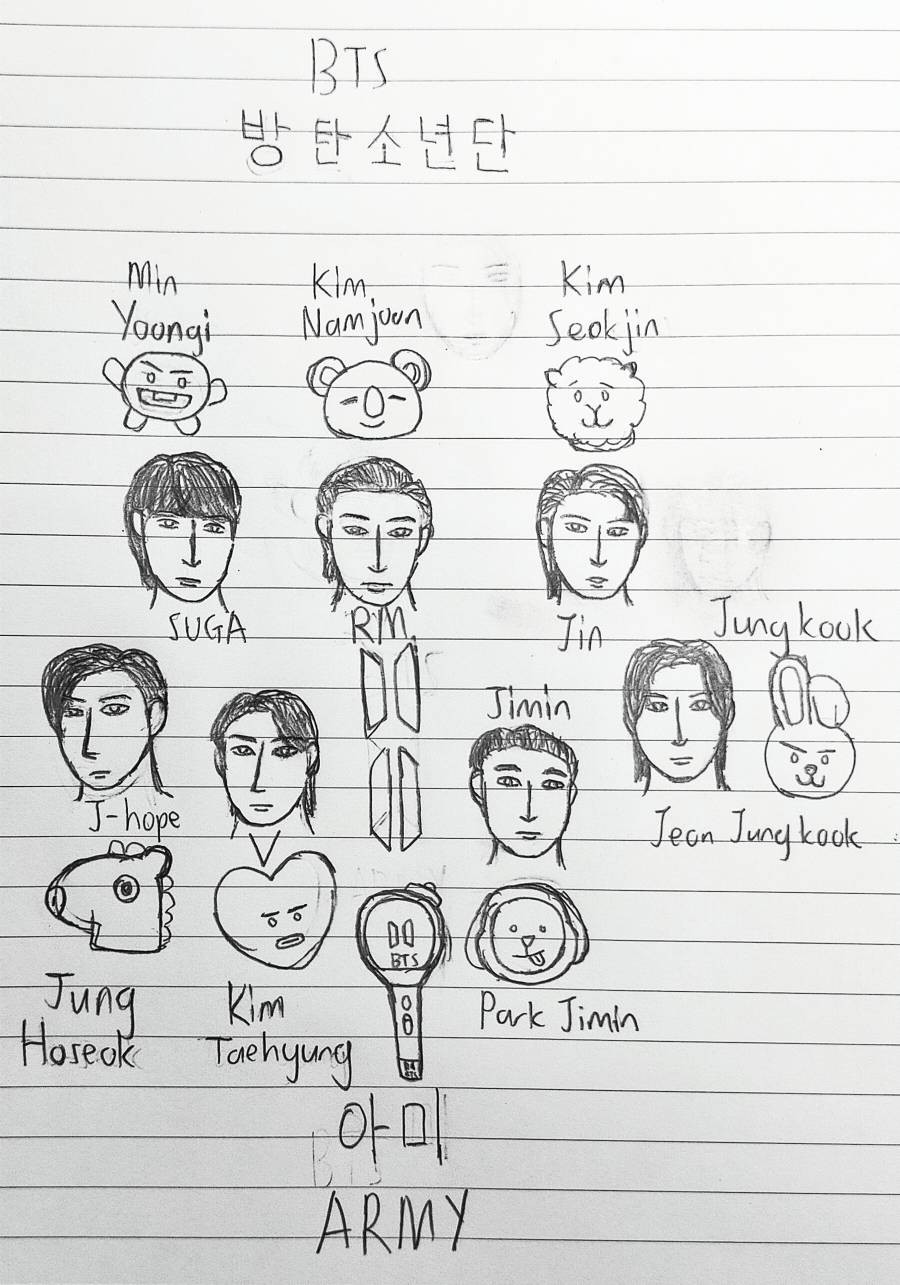 BTS
방탄소년단
Min
Yoongi
Kim
Namjoon
Kim
Seokjin
SUGA
RM
Jin
Jungkook
Jimin
J-hope
Jeon Jungkook
BTS
Jung
Hoseok
Kim
Taehyung
Park Jimin
아미
BTS
ARMY